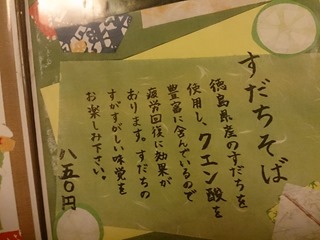 すだちそば
徳島県産のすだちを
使用し、クエン酸を
豊富に含んでいるので
疲労回復に効果が
あります。すだちの
すがすがしい味覚を
お楽しみ下さい。
八五〇円